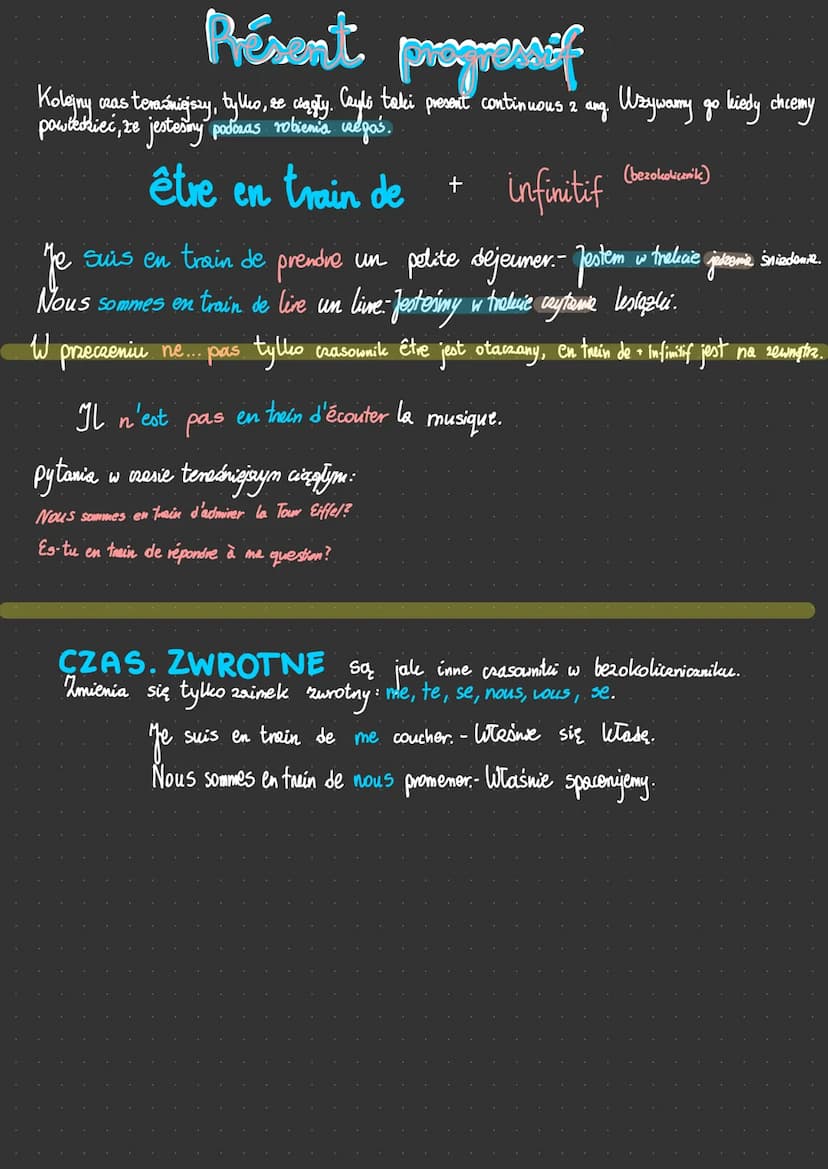 Présent progressif
Kolejny czas teraźniejszy, tylko, że ciągły. Czyli taki present continuous z ang. Używamy go kiedy chcemy
powiedzieć, że jesteśmy podczas robienia czegoś.
être en train de + infinitif (bezokolicznik)
Je suis en train de prendre un petite dejeuner.- Jestem w trakcie jedzenia śniadania.
Nous sommes en train de lire un livre.- Jesteśmy w trakcie czytania książki.
W przeczeniu ne... pas tylko czasownik être jest otaczany, en train de + infinitif jest na zewnątrz.
Il n'est pas en train d'écouter la musique.
Pytania w czasie teraźniejszym ciągłym:
Nous sommes en train d'admirer la Tour Eiffel?
Es-tu en train de répondre à ma question?
CZAS. ZWROTNE są jak inne czasowniki w bezokoliczniczniku.
Zmienia się tylko zaimek zwrotny: me, te, se, nous, vous, se.
Je suis en train de me coucher. - Właśnie się kładę.
Nous sommes en train de nous promener.- Właśnie spacerujemy.